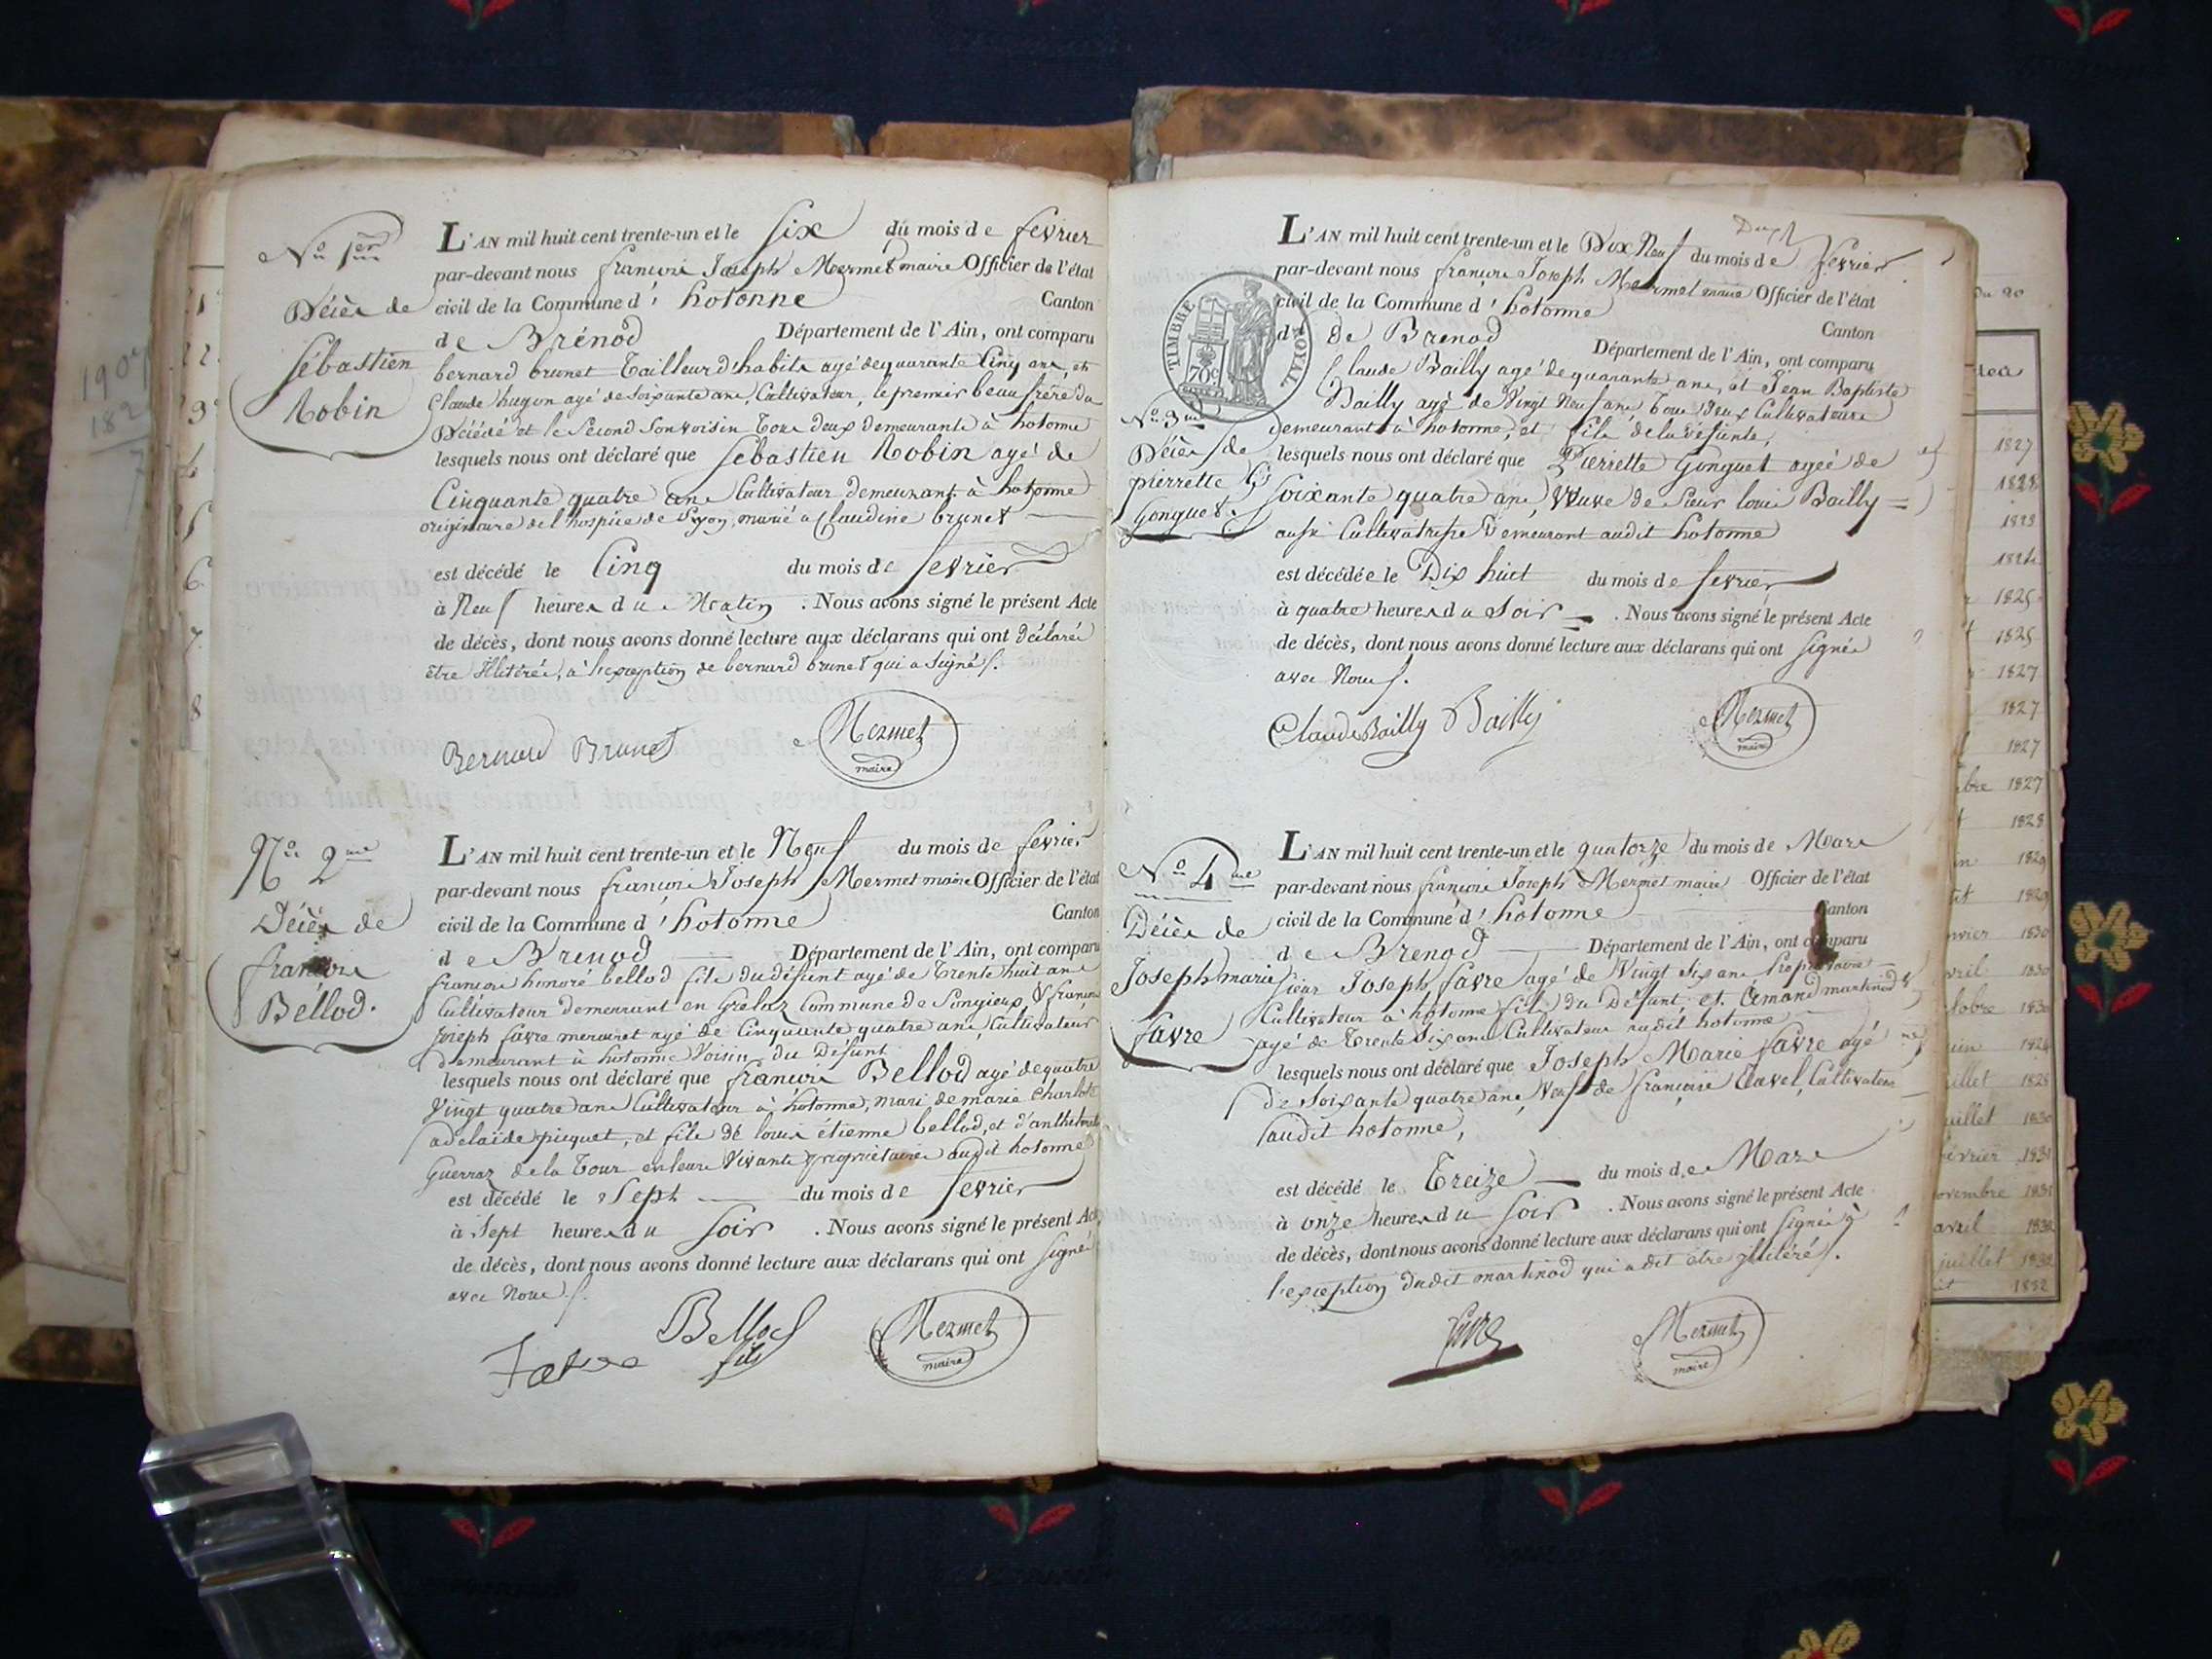 No 1er
Décès de
Sébastien
Robin
L'AN mil huit cent trente-un et le Six du mois de fevrier
par-devant nous françois Joseph Mermet maire Officier de l'état
civil de la Commune d' hotonne Canton
de Brénod Département de l'Ain, ont comparu
bernard brunet Tailleur d'habits agé de quarante Cinq ans, et
Claude hugon agé de soixante ans, Cultivateur, le premier beau frère du
Décédé et le Second Son voisin Tous deux demeurants à hotonne
lesquels nous ont déclaré que Sebastien Robin agé de
Cinquante quatre ans Cultivateur demeurant à hotonne
originaire de l'hospice de Lyon, marié a Claudine brunet
est décédé le Cinq du mois de fevrier
à Neuf heures du Matin . Nous avons signé le présent Acte
de décès, dont nous avons donné lecture aux déclarans qui ont déclarés
être Illitérés, à l'exception de bernard brunet qui a signé.
Bernard Brunet
Mermet
maire
No 2me
Décès de
françois
Bellod.
L'AN mil huit cent trente-un et le Neuf du mois de fevrier
par-devant nous françois Joseph Mermet maire Officier de l'état
civil de la Commune d' hotonne Canton
de Brenod Département de l'Ain, ont comparu
françois honoré bellod fils du défunt agé de Trente huit ans
Cultivateur demeurant en Commune de Songieux, & françois
joseph favre mercinet agé de Cinquante quatre ans, Cultivateur
demeurant à hotonne Voisin du Défunt
lesquels nous ont déclaré que françois Bellod agé de quatre
Vingt quatre ans Cultivateur à hotonne, mari de marie Charlote
adelaïde piquet, et fils de louis étienne bellod, et d'anthelmette
Guerraz de la Tour en leurs Vivants propriétaires audit hotonne
est décédé le Sept du mois de fevrier
à Sept heures du Soir . Nous avons signé le présent Acte
de décès, dont nous avons donné lecture aux déclarans qui ont signés
avec Nous.
Favre
Bellod
fils
Mermet
maire
Deux
L'AN mil huit cent trente-un et le Dix Neuf du mois de fevrier
par-devant nous françois Joseph Mermet maire Officier de l'état
civil de la Commune d' hotonne
Canton
d de Brenod Département de l'Ain, ont comparu
TIMBRE ROYAL
70c
Claude Bailly agé de quarante ans, et Jean Baptiste
Bailly agé de Vingt Neuf ans Tous deux Cultivateurs
demeurants à hotonne, et fils de la défunte,
No 3me
Décès de
pierrette
Gonguet.
lesquels nous ont déclaré que Pierrette Gonguet agée de
soixante quatre ans, Veuve de Sieur louis Bailly
aussi Cultivatrisse Demeurant audit hotonne
est décédée le Dix huit du mois de fevrier
à quatre heures du Soir . Nous avons signé le présent Acte
de décès, dont nous avons donné lecture aux déclarans qui ont signés
avec Nous.
Claude Bailly Bailly
Mermet
maire
No 4me
Décès de
Joseph marie
favre
L'AN mil huit cent trente-un et le quatorze du mois de Mars
par-devant nous françois Joseph Mermet maire Officier de l'état
civil de la Commune d' hotonne Canton
de Brenod Département de l'Ain, ont comparu
Sieur Joseph favre agé de Vingt Six ans Propriétaire
Cultivateur à hotonne fils du Défunt, et Amand martinod
agé de Trente Six ans Cultivateur audit hotonne
lesquels nous ont déclaré que Joseph Marie favre agé
de Soixante quatre ans, Veuf de françoise Clavel, Cultivateur
audit hotonne,
est décédé le Treize du mois de Mars
à onze heures du Soir . Nous avons signé le présent Acte
de décès, dont nous avons donné lecture aux déclarans qui ont signés à
l'exception dudit martinod qui a dit être illitéré.
favre
Mermet
maire
1827
1828
1827
1827
1827
1827
1828
1829
1829
1830
1830
1830
1830
1831
1831
avril
juillet
1832